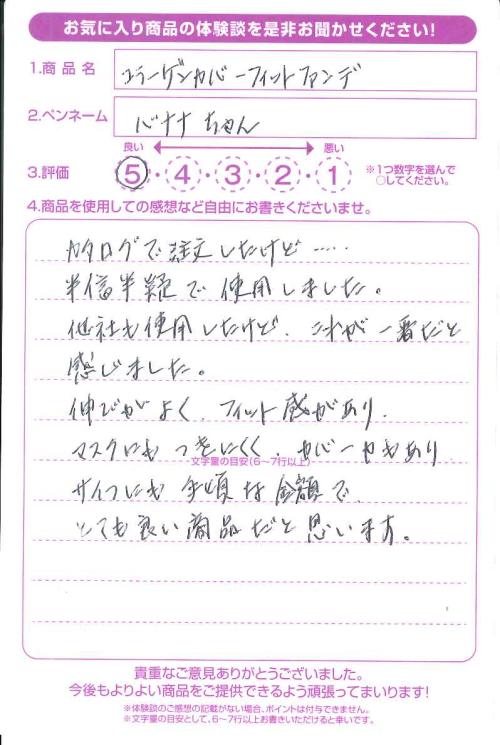 お気に入り商品の体験談を是非お聞かせください!
1.商品名
コラーゲンカバーフィットファンデ
2.ペンネーム
バナナちゃん
良い 悪い
3.評価
5・4・3・2・1
※1つ数字を選んで
○してください。
4.商品を使用しての感想など自由にお書きくださいませ。
カタログで注文したけど……
半信半疑で使用しました。
他社も使用したけど、これが一番だと
感じました。
伸びがよく、フィット感があり、
マスクにもつきにくく、カバー力もあり
文字量の目安(6〜7行以上)
サイフにも手頃な金額で、
とても良い商品だと思います。
貴重なご意見ありがとうございました。
今後もよりよい商品をご提供できるよう頑張ってまいります!
※体験談のご感想の記載がない場合、ポイントは付与できません。
※文字量の目安として、6〜7行以上お書きいただけると幸いです。